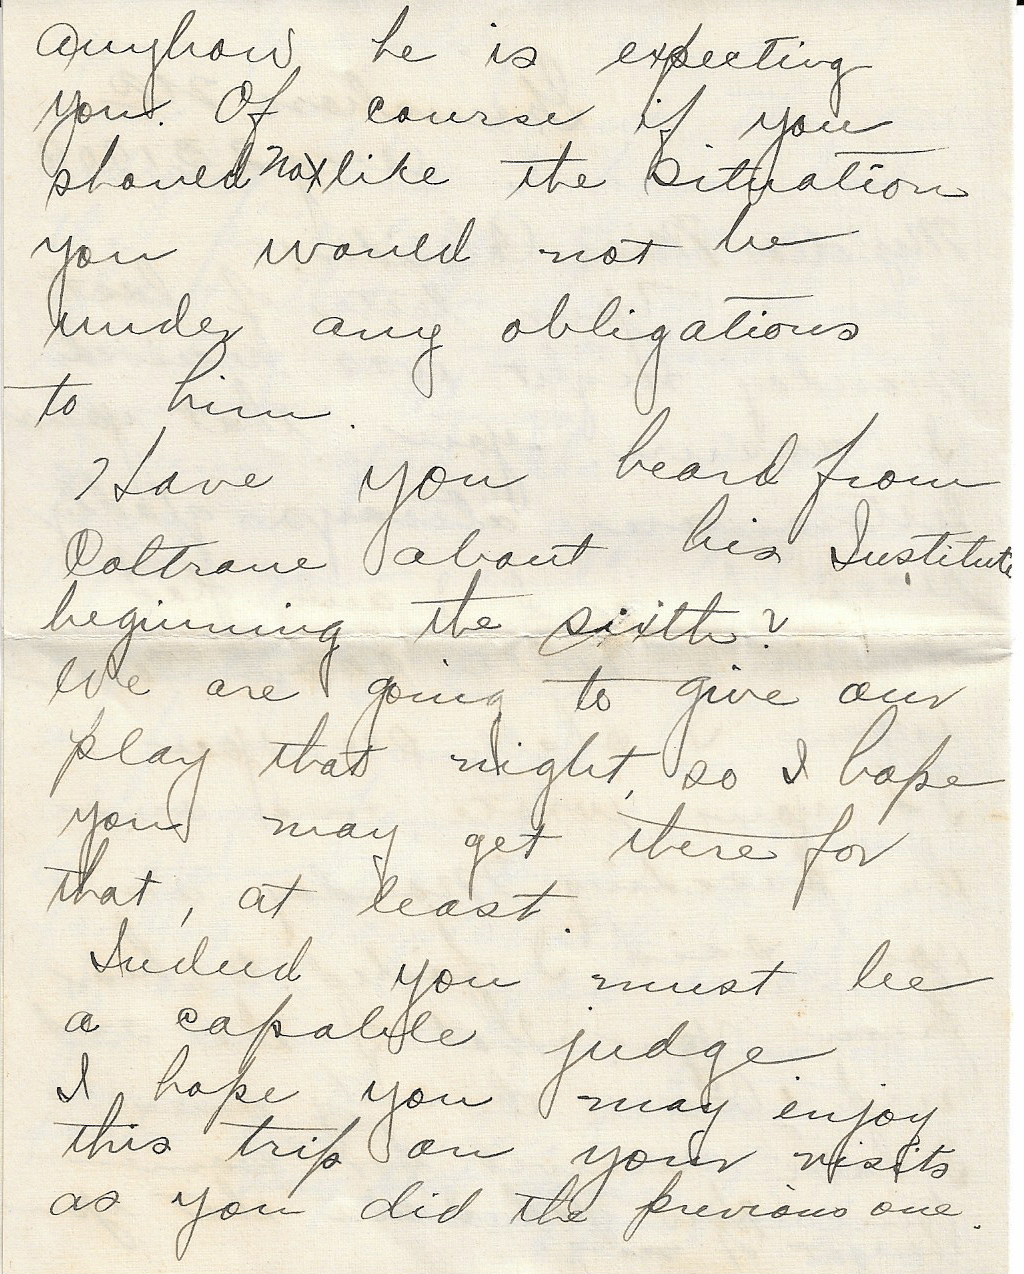 Anyhow he is expecting
you. Of course if you
should not like the situation
you would not be
under any obligations
to him.
Have you heard from
Coltrane about his Institute
beginning the sixth?
We are going to give our
play that night, so I hope
you may get there for
that, at least.
Indeed you must be
a capable judge
I hope you may enjoy
this trip on your visits
as you did the previous one.